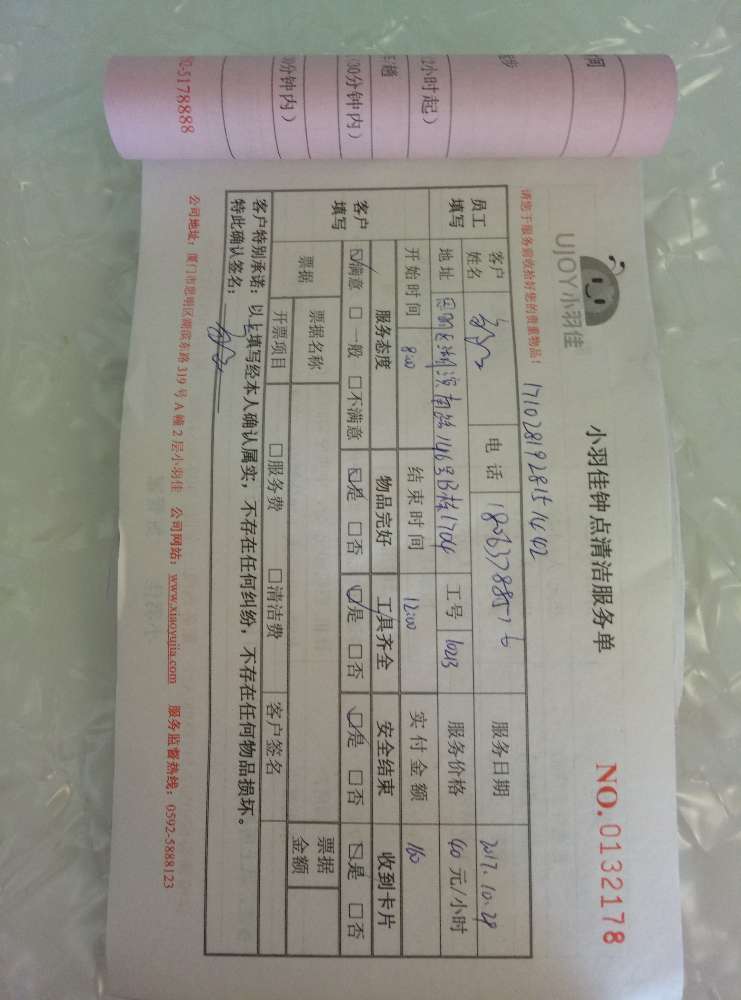 UJOY小羽佳
小羽佳钟点清洁服务单
NO.0132178
请您于服务前收拾好您的贵重物品!
17102819281571442
员工填写
客户姓名
电话
服务日期 2017.10.29
地址
工号 10213
服务价格 40 元/小时
开始时间 8:00 结束时间 12:00 实付金额 160
客户填写
服务态度 物品完好 工具齐全 安全结束 收到卡片
☑满意 □一般 □不满意 ☑是 □否 ☑是 □否 ☑是 □否 ☑是 □否
票据 票据名称 票据金额
开票项目 □服务费 □清洁费 客户签名
客户特别承诺:以上填写经本人确认属实,不存在任何纠纷,不存在任何物品损坏。
特此确认签名:
公司地址:厦门市思明区湖滨东路319号A幢2层小羽佳 公司网站:www.xiaoyujia.com 服务监督热线:0592-5888123
间
2小时起)
00分钟内)
分钟内)
92-5178888